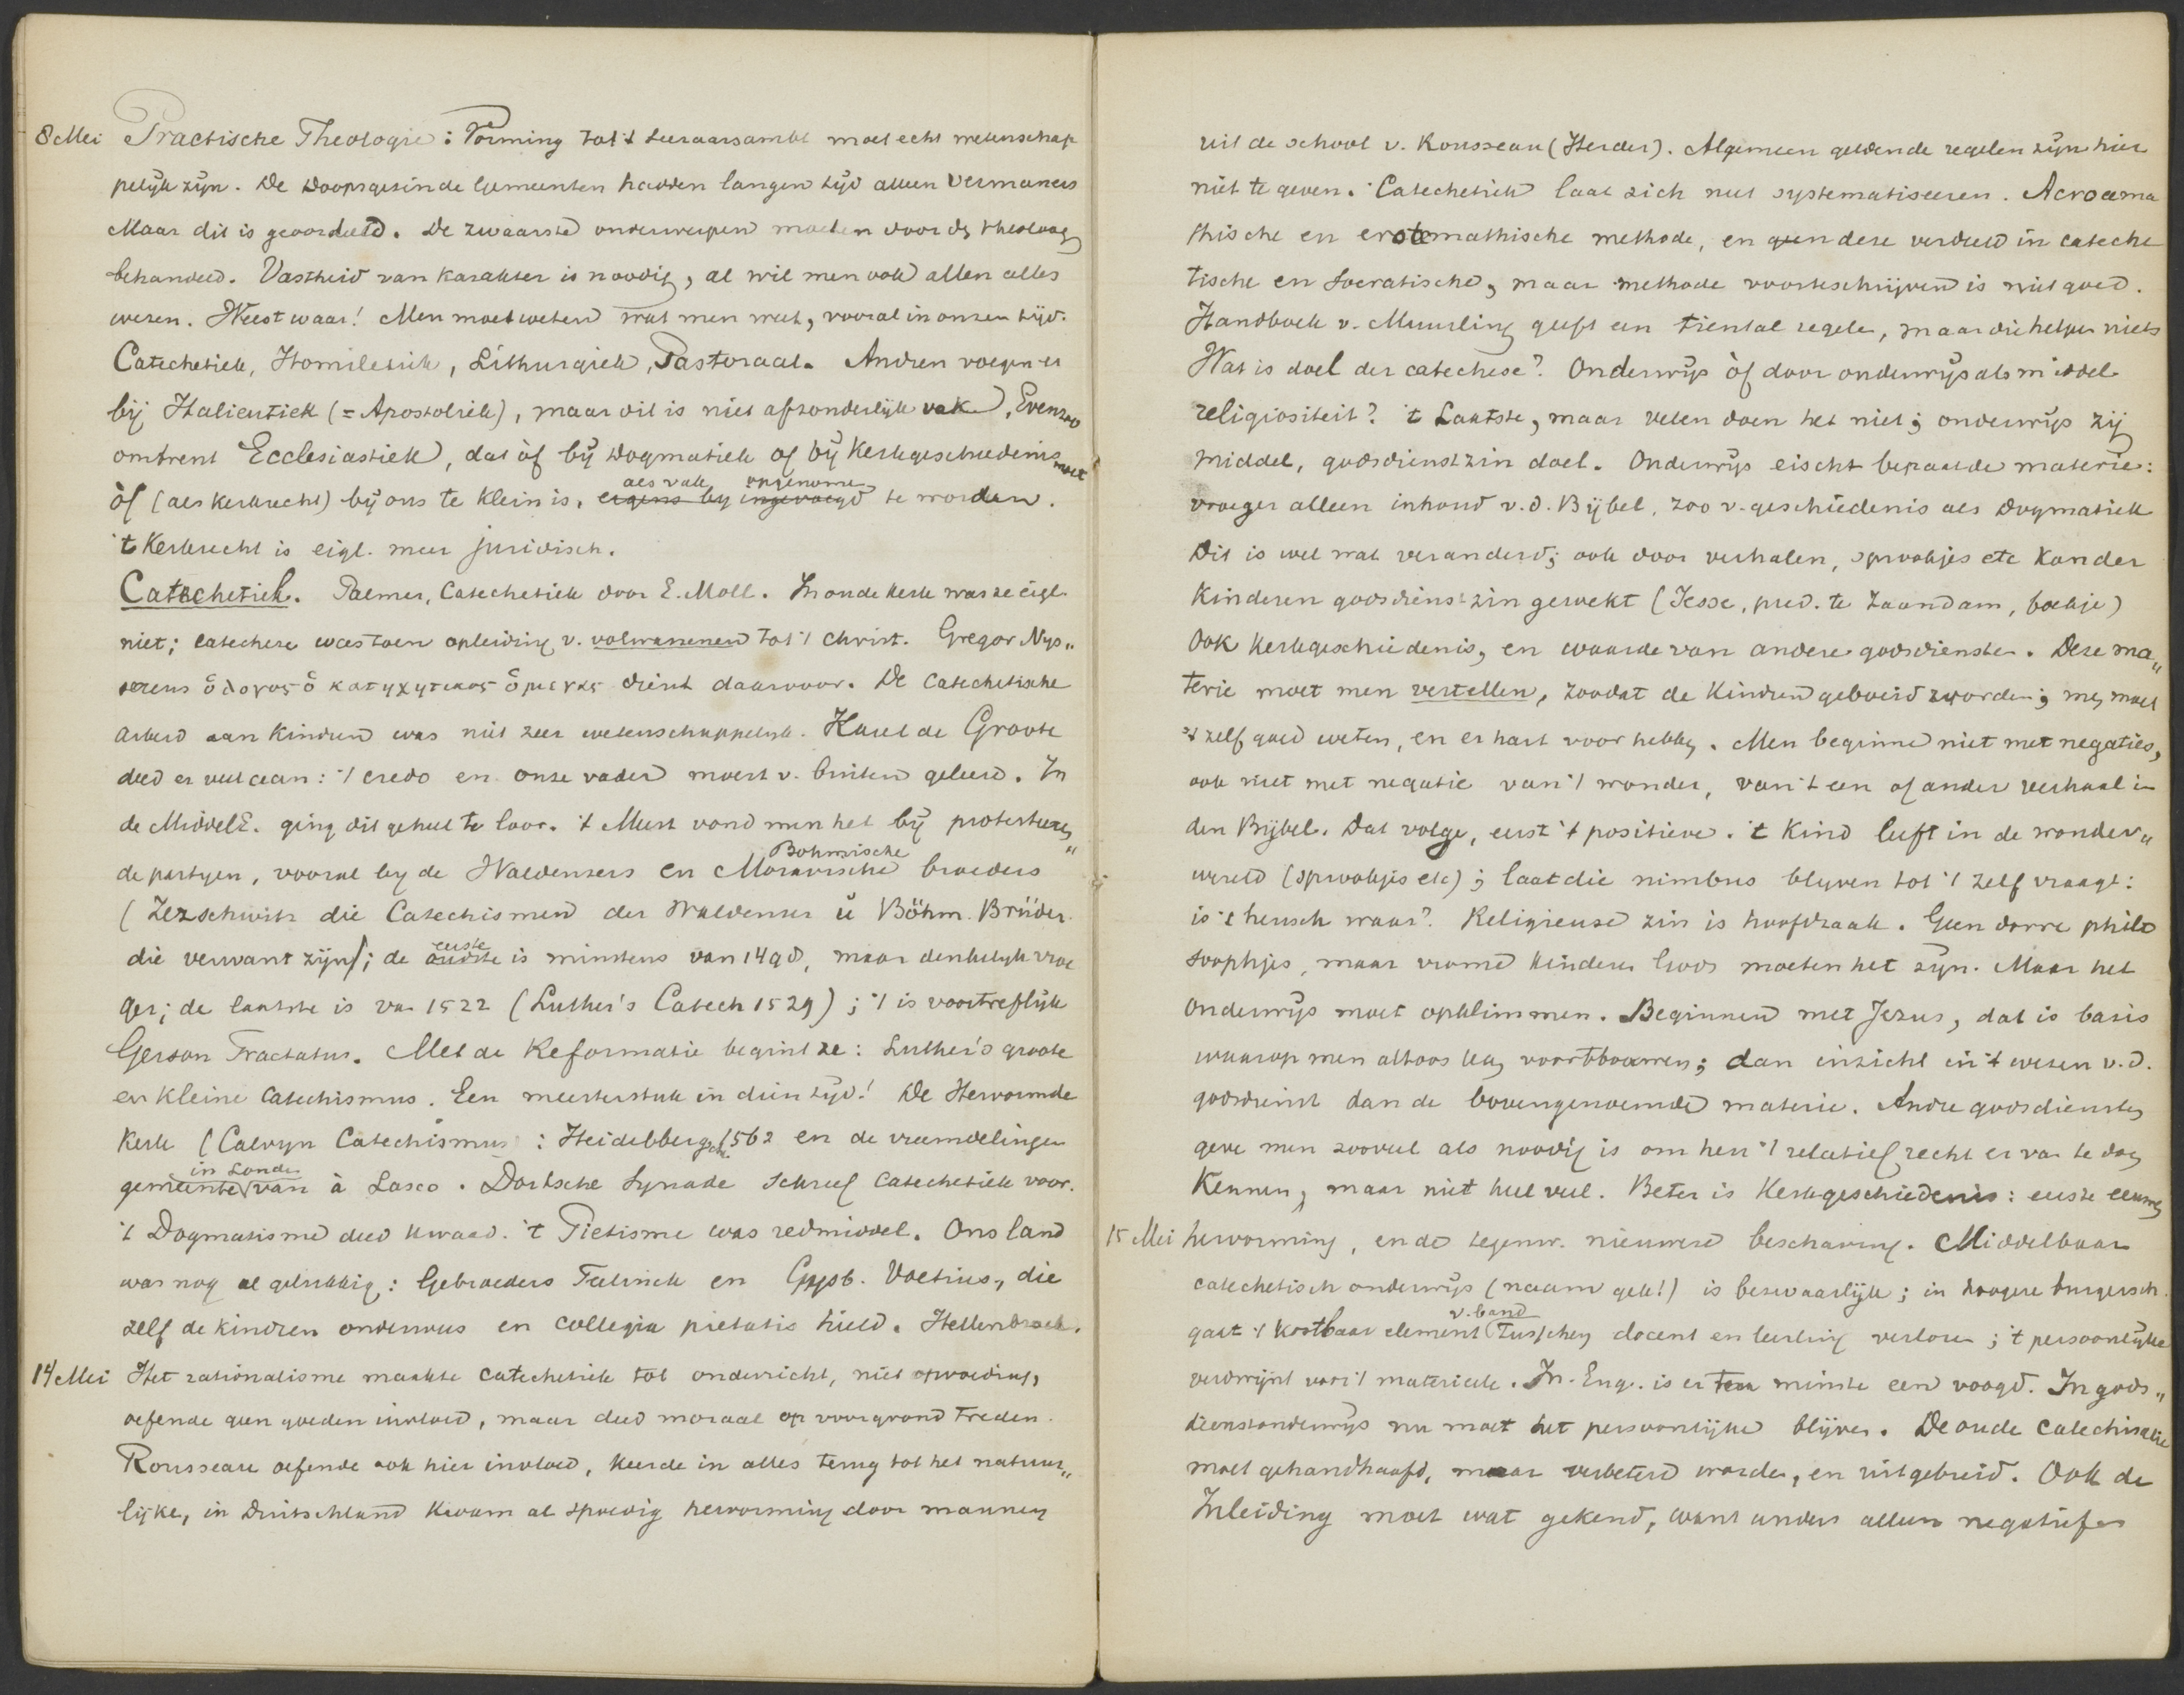 8 Mei Practische Theologie: Vorming tot 't Leeraarsambt moet echt wetenschap
pelijk zijn. De Doopsgezinde Gemeenten hadden langen tijd alleen Vermaners
Maar dit is geoordeeld. De zwaarste onderwerpen moeten door de theoloog
behandeld. Vastheid van karakter is noodig, al wil men ook allen alles
wezen. Weest waar! Men moet weten wat men weet, vooral in onzen tijd.
Catechetiek, Homiletiek, Lithurgiek, Pastoraal. Andren voegen er
bij Halieutiek (= Apostoliek), maar dit is niet afzonderlijk vak. Evenzoo
omtrent Ecclesiastiek, dat òf bij Dogmatiek of bij Kerkgeschiedenis moet
òf (als kerkrecht) bij ons te klein is, ergens by ingevoegd als vak opgenomen te worden.
't Kerkrecht is eigl. meer juridisch.
Catechetiek. Palmer, Catechetiek door E. Moll. In oude kerk was ze eigl
niet; catechese was toen opleiding v. volwassenen tot 't Christ. Gregor Nys„
senus ὁ λογος ὁ κατηχητικος ὁ μεγας dient daarvoor. De Catechetische
arbeid aan kindren was niet zeer wetenschappelijk. Karel de Groote
deed er veel aan: 't credo en onze vader moest v. buiten geleerd. In
de MiddelE. ging dit geheel te loor. 't Meest vond men het bij protesteeren„
de partyen, vooral by de Waldenzers en Moravische Bohmische broeders
(Zezschwitz die Catechismen der Waldenser u Böhm. Brüder.
die verwant zijn); de oudste eerste is minstens van 1490, maar denkelyk vroe
ger; de laatste is van 1522 (Luther's Catech 1529); 't is voortreflijk
Gerson Tractatus. Met de Reformatie begint ze: Luther's groote
en kleine Catechismus. Een meesterstuk in dien tijd! De Hervormde
Kerk (Calvyn Catechismus: Heidelbbergsche 1562 en de vreemdelingen
gemeente in Londen van à Lasco. Dortsche Synode schreef Catechetiek voor.
't Dogmatisme deed kwaad. 't Pietisme was redmiddel. Ons land
was nog al gelukkig: Gebroeders Teelinck en Gysb. Voetius, die
zelf de kindren onderwees en collegia pietatis hield. Hellenbroek.
14 Mei Het rationalisme maakte catechetiek tot onderricht, niet opvoeding,
oefende geen goeden invloed, maar deed moraal op voorgrond treden.
Rousseau oefende ook hier invloed, keerde in alles terug tot het natuur„
lijke, in Duitschland kwam al spoedig hervorming door mannen
uit de school v. Rousseau (Herder). Algemeen geldende regelen zijn hier
niet te geven. Catechetiek laat zich niet systematiseeren. Acroama
thische en erotemathische methode, en geen deze verdeeld in cateche
tische en Socratische, maar methode voorteschrijven is niet goed.
Handboek v. Muurling geeft een tiental regelen, maar die helpen niets
Wat is doel der catechese? Onderwijs òf door onderwijs als middel
religiositeit? 't Laatste, maar velen doen het niet; onderwijs zij
middel, godsdienstzin doel. Onderwijs eischt bepaalde materie:
vroeger alleen inhoud v.d. Bijbel, zoo v. geschiedenis als Dogmatiek
Dit is wel wat veranderd; ook door verhalen, sprookjes etc kan der
kinderen godsdienstzin gewekt (Jesse, pred. te Zaandam, boekje)
Ook kerkgeschiedenis, en waarde van andere godsdiensten. Deze ma„
terie moet men vertellen, zoodat de kindren geboeid worden; men moet
't zelf goed weten, en er hart voor hebben. Men beginne niet met negaties,
ook niet met negatie van 't wonder, van 't een of ander verhaal in
den Bijbel. Dat volge, eerst 't positieve. 't Kind leeft in de wonder„
wereld (sprookjes etc); laat die nimbus blyven tot 't zelf vraagt:
is 't heusch waar? Religieuse zin is hoofdzaak. Geen dorre philo
soophjes, maar vrome kinderen Gods moeten het zijn. Maar het
onderwijs moet opklimmen. Beginnen met Jezus, dat is basis
waarop men altoos kan voortbouwen; dan inzicht in 't wezen v.d.
godsdienst dan de bovengenoemde materie. Andre godsdiensten
geve men zooveel als noodig is om hen 't relatief recht er van te doen
kennen, maar niet heel veel. Beter is Kerkgeschiedenis: eerste eeuwen
15 Mei hervorming, en de tegenw. nieuwere beschaving. Middelbaar
catechetisch onderwijs (naam gek!) is bezwaarlijk; in hoogere burgersch.
gaat 't kostbaar element v. band tusschen docent en leerling verloren; 't persoonlijke
verdwijnt voor 't materieele. In Eng. is er ten minste een voogd. In gods„
dienstonderwijs nu moet het persoonlijke blijven. De oude catechisatie
moet gehandhaafd, maar verbeterd worden, en uitgebreid. Ook de
Inleiding moet wat gekend, want anders alleen negatief en